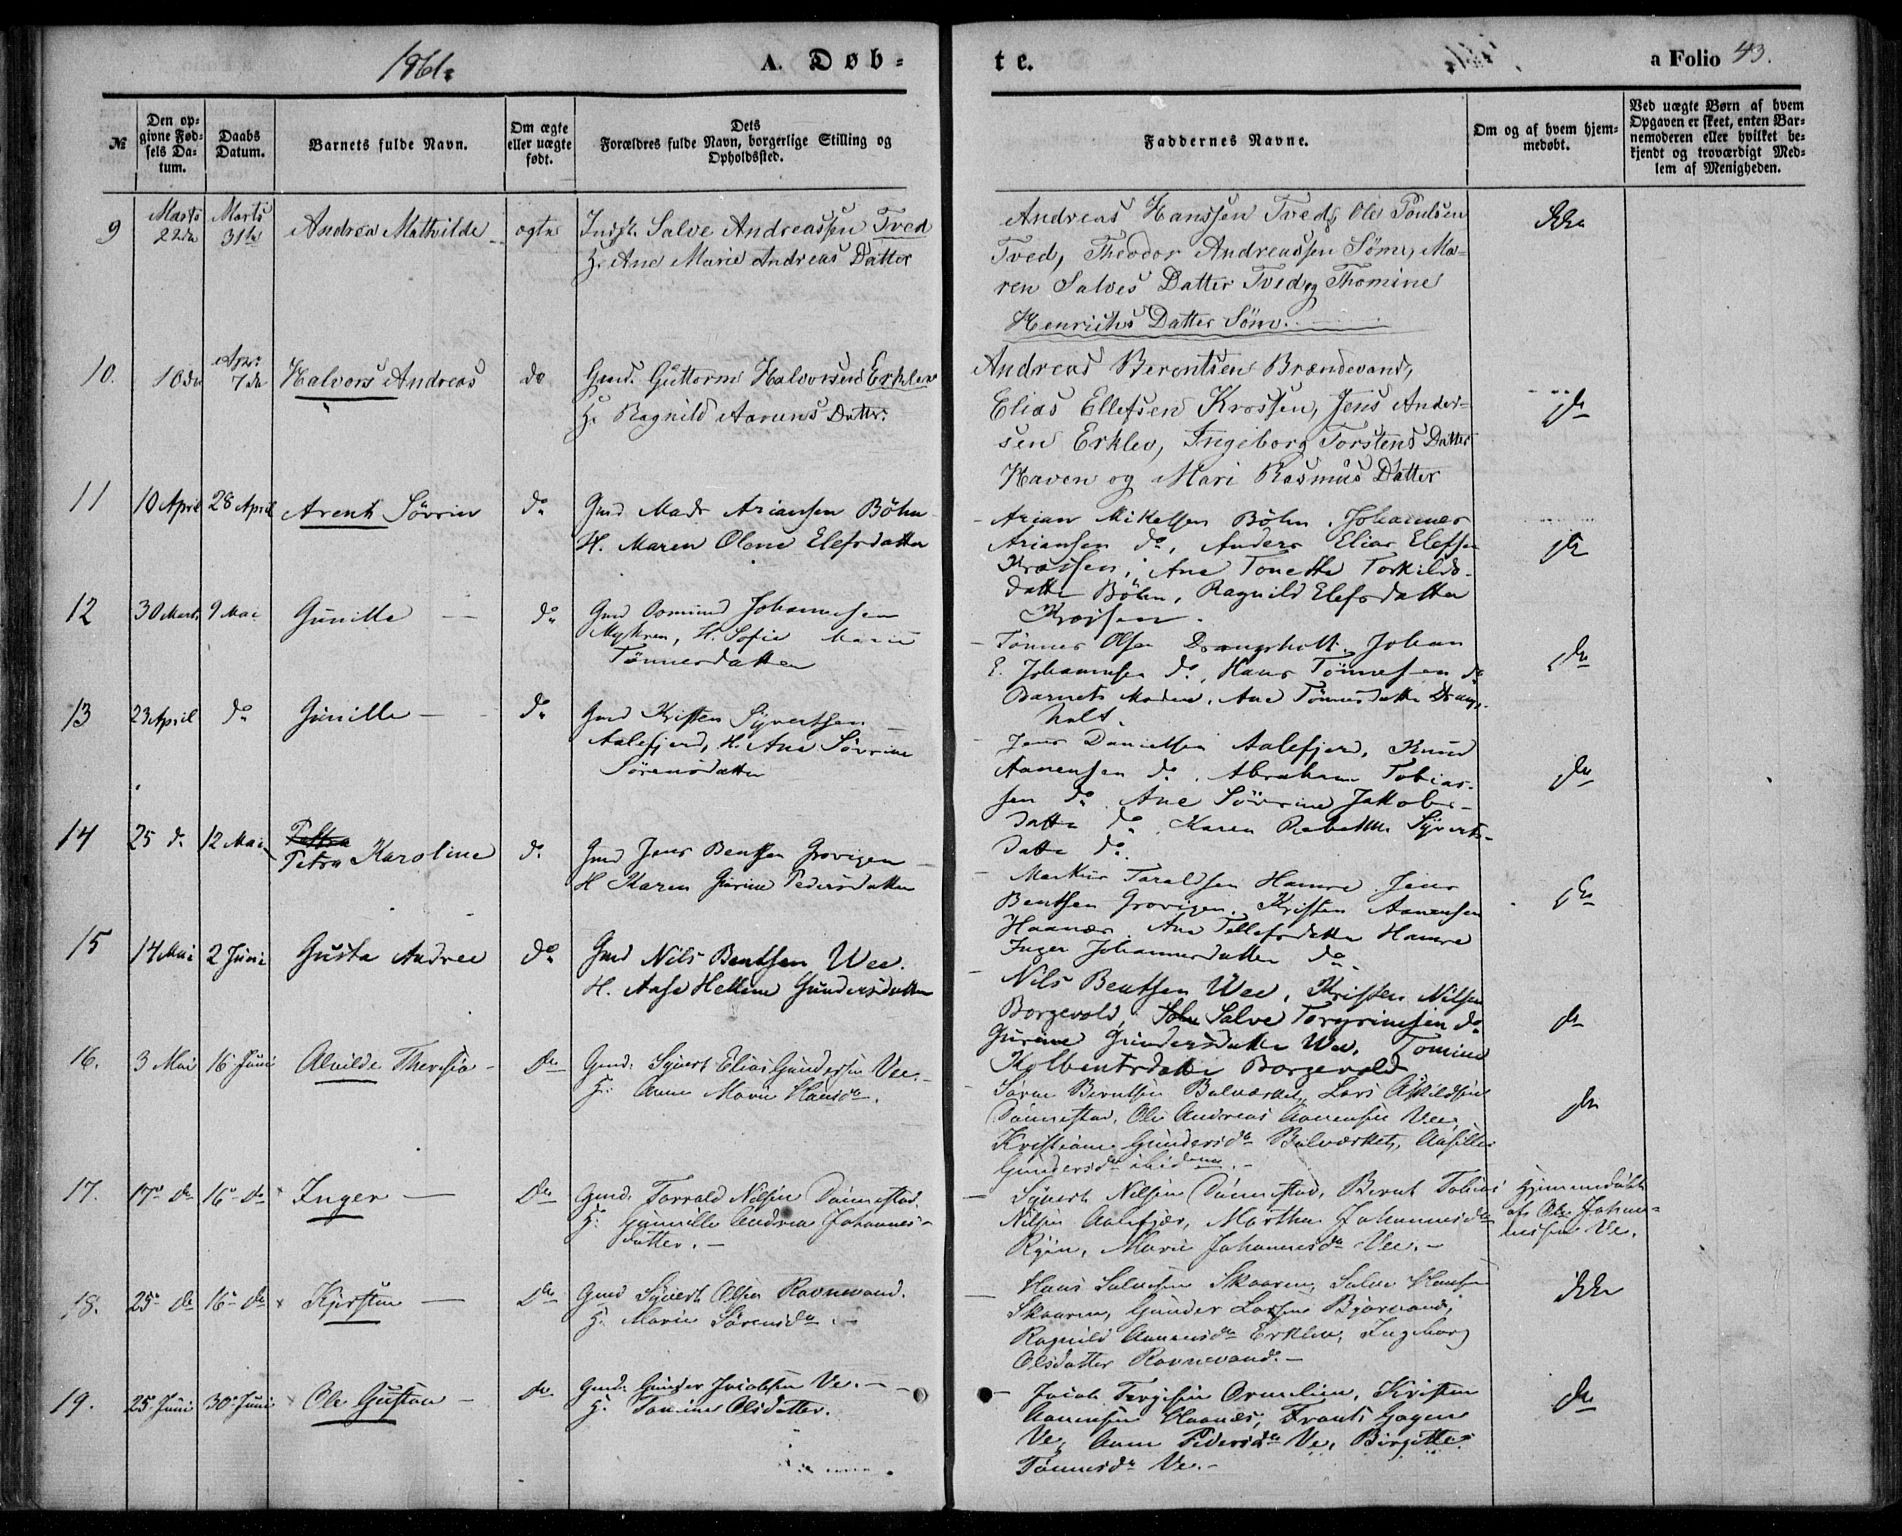 1861.
A. Døb-
te.
a Folio 43.
№
Den op-
givne Fød-
sels Da-
tum.
Daabs
Datum.
Barnets fulde Navn.
Om ægte
eller uægte
født.
Dets
Forældres fulde Navn, borgerlige Stilling og
Opholdssted.
Faddernes Navne.
Om og af hvem hjem-
medøbt.
Ved uægte Børn af hvem
Opgaven er skeet, enten Bar-
nemoderen eller hvilket be-
kjendt og troværdigt Med-
lem af Menigheden.
9
Marts
22de
Marts
31te
Andrea Mathilde
ægte
Salve Andreassen Tved
H. Ane Marie Andreas Datter
Andreas Hanssen Tved, Ole Poulsen
Tved, Theodor Andreassen Sømi, Ma-
ren Salves Datter Tved og Thomine
Henriks Datter Sømi.
Ikke
10.
10de
Apr.
7de
Halvors Andreas
do
Gmd. Guttorm Halvorsen Erklev
H. Ragnild Aanuns Datter.
Andreas Berentsen Brændevand,
Elias Ellefsen Krossen, Jens Ander-
sen Erklev, Ingeborg Torstens Datter
Haven og Mari Rasmus Datter
do
11
10 April
28 April
Arent Sövrin
do
Gmd Mads Ariansen Böhn
H. Maren Olene Elefsdatter
Arian Mikelsen Böhn, Johannes
Ariansen do, Anders Elias Elefsen
Krossen, Ane Tonette Torkilds-
datter Böhn, Ragnild Elefsdatter
Krossen.
do
12
30 Marts
9 Mai
Gunille
do
Gmd Osmund Johannesen
Myhren, H. Sofie Marie
Tönnesdatter
Tönnes Olsen Drangsholt, Johan
E. Johannsen do, Hans Tönnesen do
Barnets Moder, Ane Tönnesdatter Drangs-
holt.
do
13
23 April
do
Gunille
do
Gmd Kristen Syvertsen
Aalefjerd, H. Ane Sövrine
Sörensdatter
Jens Danielsen Aalefjerd, Knud
Aanensen do, Abraham Tobias-
sen do, Ane Sövrine Jakobs-
datter do, Karen Rebekke Syverts-
datter do.
do
14
25 do
12 Mai
Petra Karoline
do
Gmd Jens Bentsen Grovigen
H Karen Gurine Pedersdatter
Markus Taraldsen Hamre, Jens
Bentsen Grovigen, Kristen Aanensen
Haanæs, Ane Tellefsdatter Hamre
Inger Johannesdatter do
do
15
14 Mai
2 Juni
Gusta Andree
do
Gmd Nils Bentsen Wee.
H. Aase Helene Gundersdatter
Nils Bentsen Wee, Kristen Nilsen
Borgevold, Salve Torgrimsen do
Gurine Gundersdatter Wee, Tomine
Kolbentsdatter Borgevold
do
16.
3 Mai
16 Juni
Alvilde Theresia
do
Gmd. Syvert Elias Gundersen Vee.
H. Anne Marie Hansd.
Sören Berntsen Bolværket, Lars Askildsen
Dönnestad, Ole Andreas Aanensen Vee,
Kristiane Gundersd. Bolværket, Aasille
Gundersd. ibidem.
do
17.
17de do
16de do
Inger
do
Gmd. Torrald Nilsen Dönnestad.
H. Gunnille Andrea Johannes-
datter.
Syvert Nilsen Dönnestad, Bernt Tobias
Nilsen Aalefjær, Marthe Johannesd.
Ryen, Marie Johannesd. Vee.
Hjemmedøbt
af Ole Johan-
nessen Ve.
18.
25de do
16de do
Kjersten
do
Gmd Syvert Olsen Ravnevand.
H. Marie Sörensd.
Hans Salvesen Skaaren, Salve Hansen
Skaaren, Gunder Larsen Bjørvand,
Ragnild Aanensd. Erklev, Ingeborg
Olsdatter Ravnevand.
ikke
19.
25 Juni
30te Juni
Ole Gustav
do
Gmd. Gunder Jacobsen Ve.
H. Tomine Olsdatter.
Jacob Tergesen Kristen
Aanensen Haanæs, Frants Gagen
Ve, Anne Pedersd. Ve, Birgitte
Tönnesd. Ve.
do